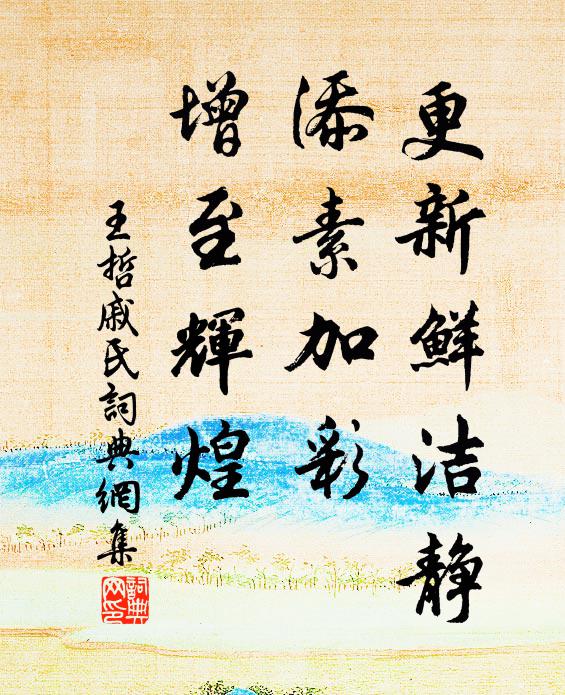 更新鮮洁静
添素加彩
增至輝煌
王哲戚氏詞典網集
詞典网印